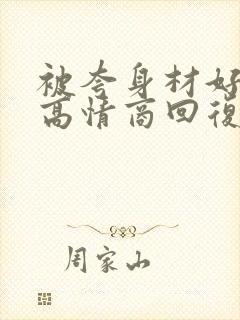 被夸身材好
高情商回復
周家山